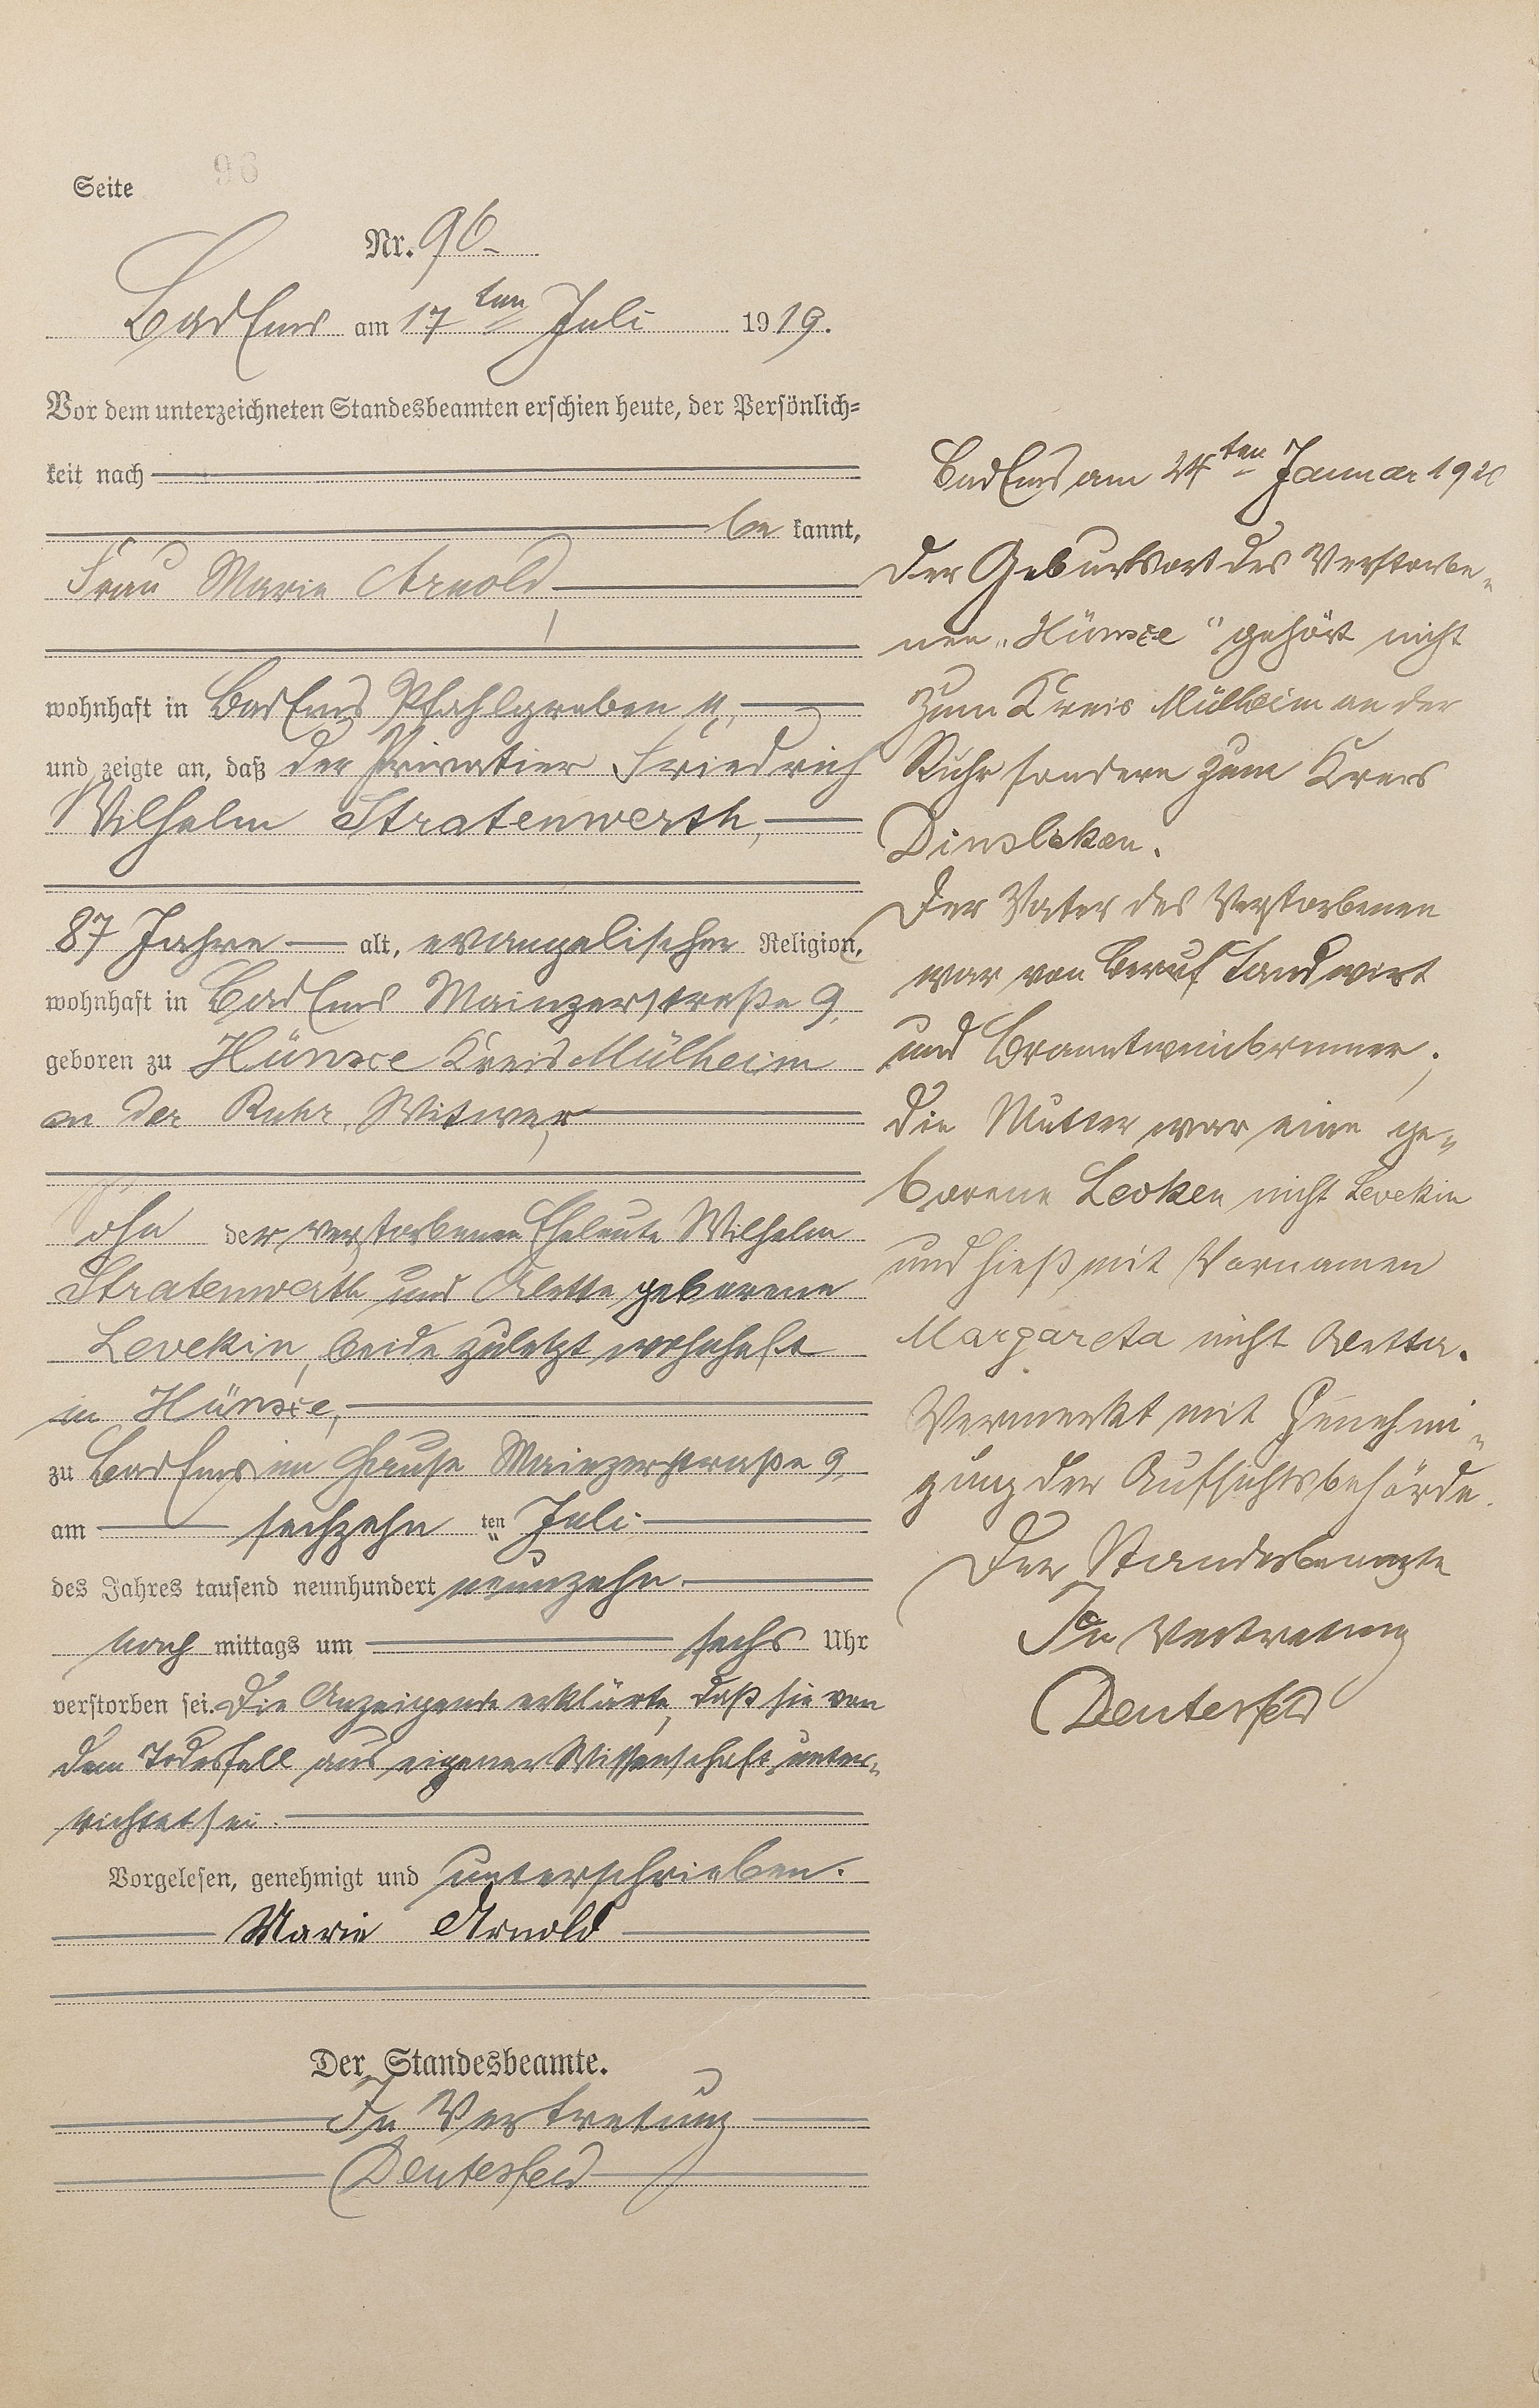 Seite 96
Nr. 96
Bad Ems am 17ten Juli 1919.
Vor dem unterzeichneten Standesbeamten erschien heute, der Persönlich=
keit nach
be kannt,
Frau Marie Arnold,
wohnhaft in Bad Ems Pfahlgraben 4,
und zeigte an, daß der Privatier Friedrich
Wilhelm Stratenwerth,
87 Jahre alt, evangelischer Religion,
wohnhaft in Bad Ems Mainzerstraße 9,
geboren zu Hünxe Kreis Mülheim
an der Ruhr, Witwer,
Sohn der verstorbenen Eheleute Wilhelm
Stratenwerth und Alette geborene
Levekin, beide zuletzt wohnhaft
in Hünxe,
zu Bad Ems im Hause Mainzerstraße 9,
am sechzehn ten Juli
des Jahres tausend neunhundert neunzehn
nach mittags um sechs Uhr
verstorben sei. Die Anzeigende erklärte, daß sie von
dem Todesfall aus eigener Wissenschaft unter-
richtet sei.
Vorgelesen, genehmigt und unterschrieben.
Marie Arnold
Der Standesbeamte.
In Vertretung
Deutesfeld
Bad Ems am 24ten Januar 1920
Der Geburtsort des Verstorbe-
nen „Hünxe" gehört nicht
zum Kreis Mülheim an der
Ruhr sondern zum Kreis
Dinslaken.
Der Vater des Verstorbenen
war von Beruf Landwirt
und Branntweinbrenner;
die Mutter war eine ge-
borene nicht Levekin
und hieß mit Vornamen
Margareta nicht Aletta.
Vermerkt mit Genehmi-
gung der Aufsichtsbehörde.
Der Standesbeamte
In Vertretung
Deutesfeld